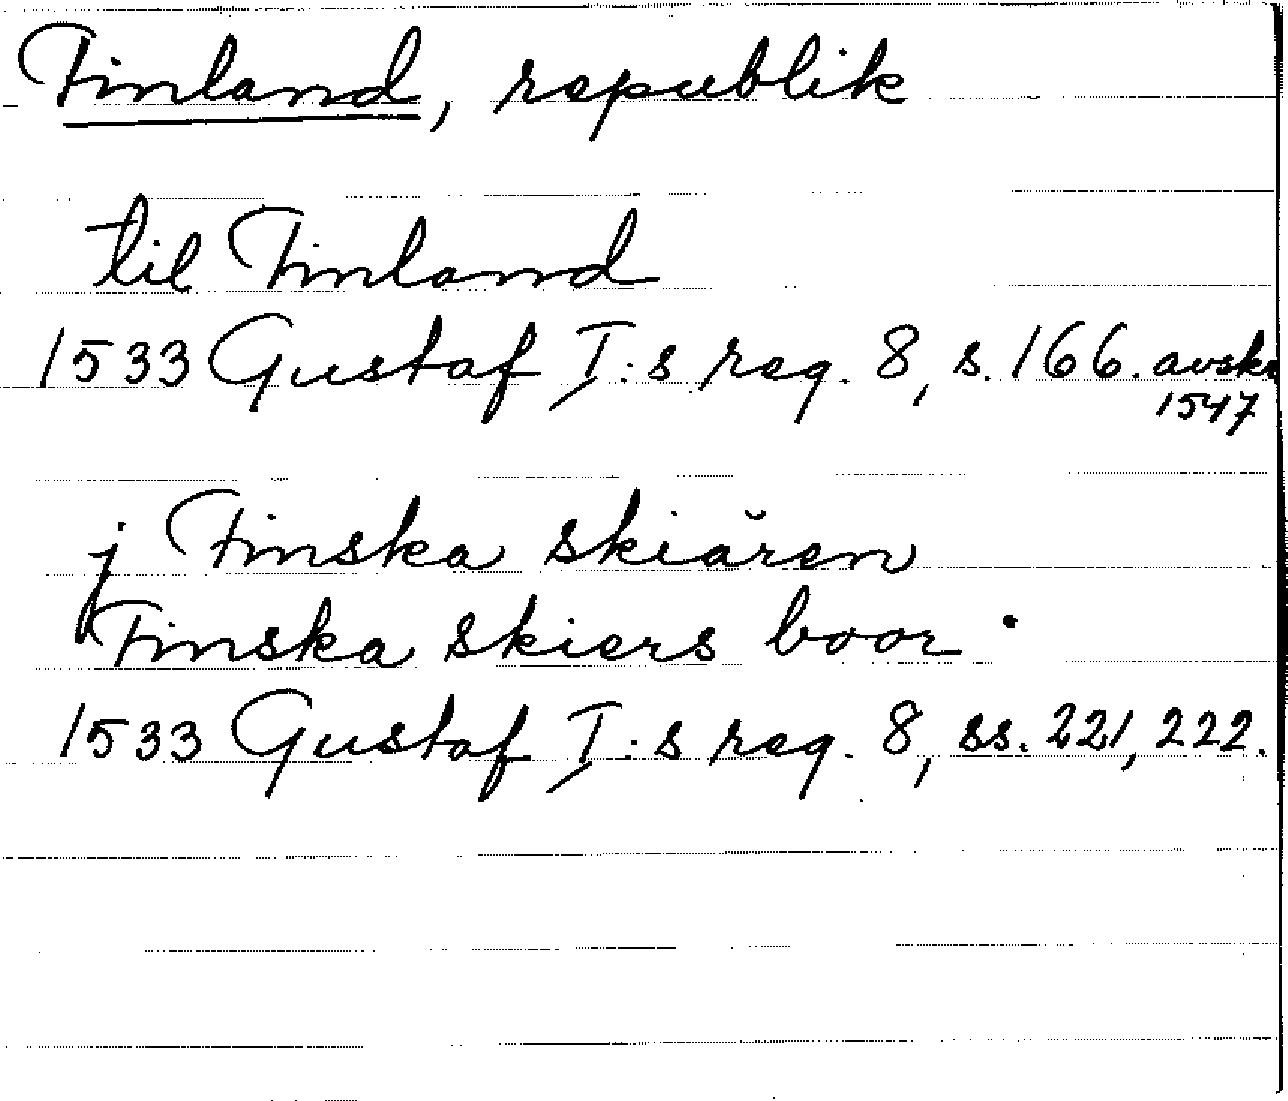 Finland, republik
til Finland
1533 Gustaf I:s reg. 8, s. 166. avskr
1547
j Finska skiären
Finska skiers boor
1533 Gustaf I:s reg. 8, ss. 221, 222.